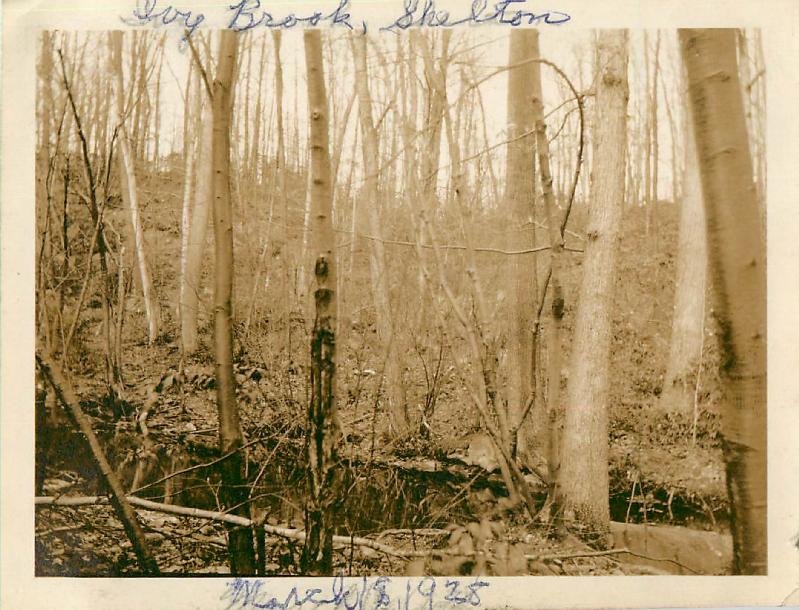 Ivy Brook, Shelton
March 8, 1925